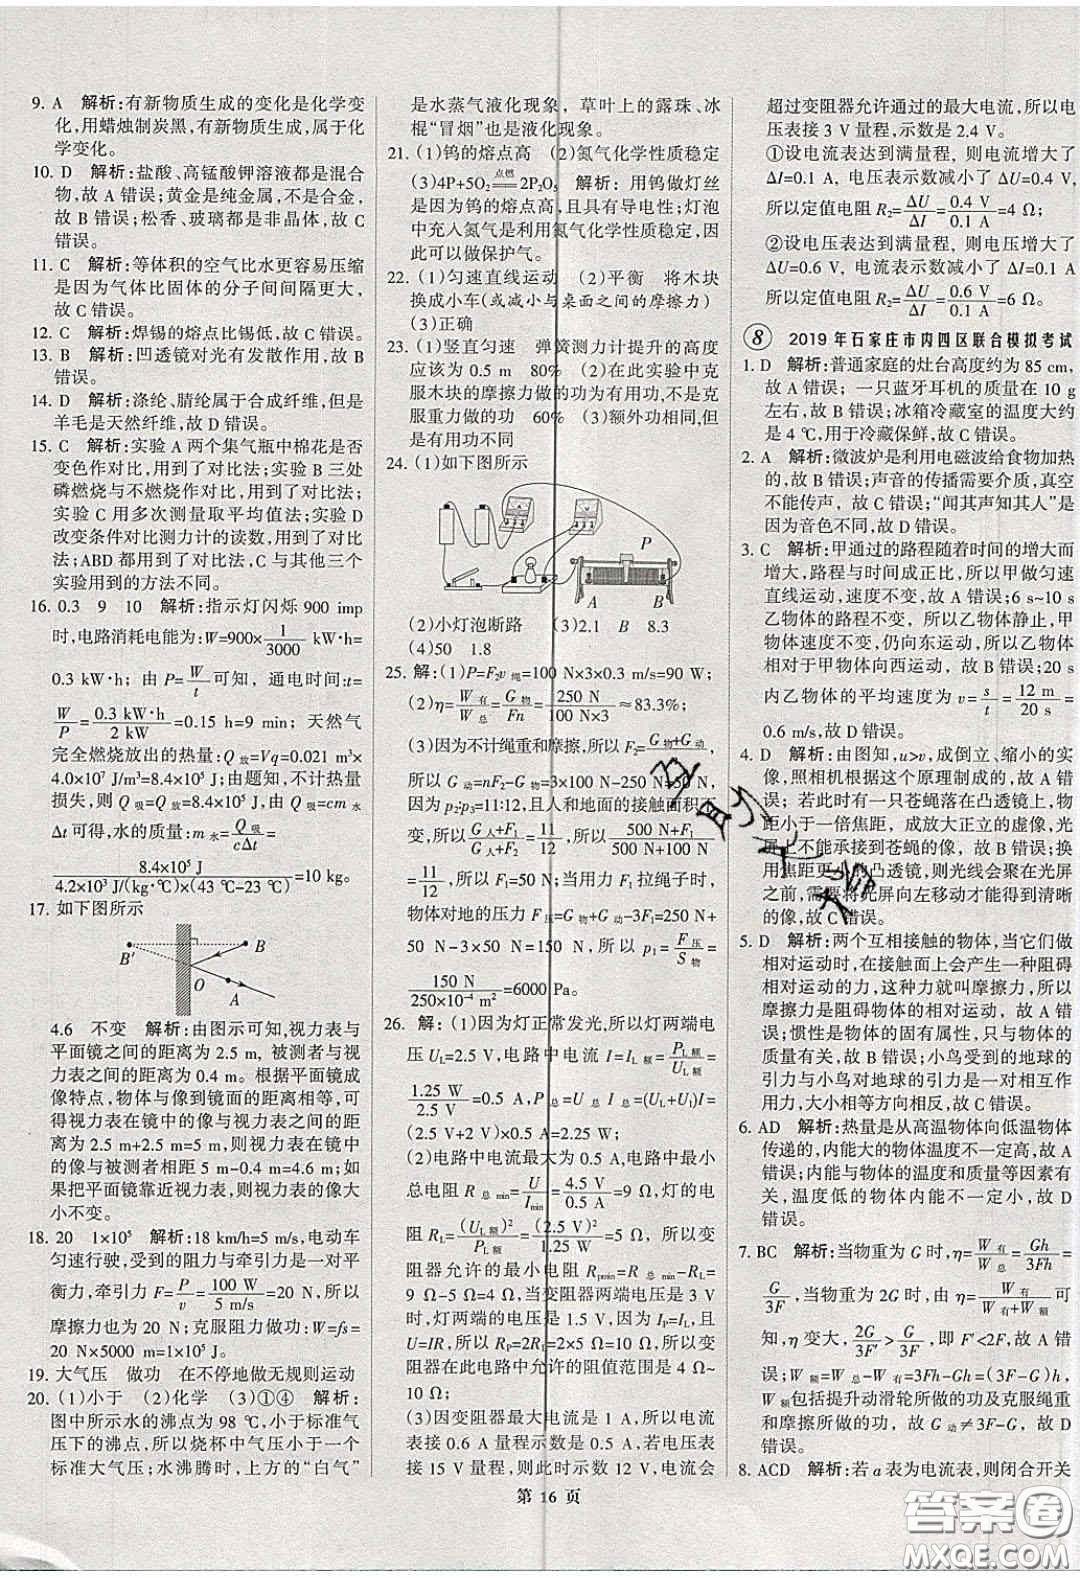 9. A 解析:有新物质生成的变化是化学变
化,用蜡烛制炭黑,有新物质生成,属于化
学变化。
10. D 解析:盐酸、高锰酸钾溶液都是混合
物,故 A 错误;黄金是纯金属,不是合金,
故 B 错误;松香、玻璃都是非晶体,故 C
错误。
11. C 解析:等体积的空气比水更容易压缩
是因为气体比固体的分子间间隔更大,
故 C 错误。
12. C 解析:焊锡的熔点比锡低,故 C 错误。
13. B 解析:凹透镜对光有发散作用,故 B
错误。
14. D 解析:涤纶、腈纶属于合成纤维,但是
羊毛是天然纤维,故 D 错误。
15. C 解析:实验 A 两个集气瓶中棉花是否
变色作对比,用到了对比法;实验 B 三处
磷燃烧与不燃烧作对比,用到了对比法;
实验 C 用多次测量取平均值法;实验 D
改变条件对比测力计的读数,用到了对比
法;ABD 都用到了对比法,C 与其他三个
实验用到的方法不同。
16. 0.3 9 10 解析:指示灯闪烁 900 imp
时,电路消耗电能为:W=900×1/3000 kW·h=
0.3 kW·h; 由 P=W/t 可知, 通电时间:t=
W/P=0.3 kW·h/2 kW=0.15 h=9 min; 天然气
完全燃烧放出的热量:Q放=Vq=0.021 m³×
4.0×10⁷ J/m³=8.4×10⁵ J;由题知,不计热量
损失,则 Q吸=Q放=8.4×10⁵ J,由 Q吸=cm水
Δt 可得,水的质量:m水=Q吸/cΔt=
8.4×10⁵ J/4.2×10³ J/(kg·℃)×(43 ℃-23 ℃)=10 kg。
17. 如下图所示
B′ B
O A
4.6 不变 解析:由图示可知,视力表与
平面镜之间的距离为 2.5 m, 被测者与视
力表之间的距离为 0.4 m。根据平面镜成
像特点,物体与像到镜面的距离相等,可
得视力表在镜中的像与视力表之间的距离
为 2.5 m+2.5 m=5 m, 则视力表在镜中
的像与被测者相距 5 m-0.4 m=4.6 m;如
果把平面镜靠近视力表,则视力表的像大
小不变。
18. 20 1×10⁵ 解析:18 km/h=5 m/s,电动车
匀速行驶,受到的阻力与牵引力是一对平
衡力,牵引力 F=P/v=100 W/5 m/s=20 N,所以
摩擦力也为 20 N;克服阻力做功:W=fs=
20 N×5000 m=1×10⁵ J。
19. 大气压 做功 在不停地做无规则运动
20. (1)小于 (2)化学 (3)①④ 解析:
图中所示水的沸点为 98 ℃,小于标准气
压下的沸点,所以烧杯中气压小于一个
标准大气压;水沸腾时,上方的“白气”
是水蒸气液化现象, 草叶上的露珠、冰
棍“冒烟”也是液化现象。
21. (1)钨的熔点高 (2)氮气化学性质稳定
(3)4P+5O₂ 点燃 2P₂O₅ 解析: 用钨做灯丝
是因为钨的熔点高,且具有导电性,灯泡
中充入氮气是利用氮气化学性质稳定,因
此可以做保护气。
22. (1)匀速直线运动 (2)平衡 将木块
换成小车(或减小与桌面之间的摩擦力)
(3)正确
23. (1)竖直匀速 弹簧测力计提升的高度
应该为 0.5 m 80% (2)此实验中不是克
服木块的摩擦力做的功为有用功,而是
克服重力做的功 60% (3)额外功相同,但
是有用功不同
24. (1)如下图所示
P
A B
(2)小灯泡断路 (3)2.1 B 8.3
(4)50 1.8
25. 解:(1)P=F₂v绳=100 N×3×0.3 m/s=90 W;
(2)η=W有/W总=G物/Fn=250 N/100 N×3≈83.3%;
(3)因为不计绳重和摩擦,所以 F₂=G物+G动/3,
所以 G动=nF₂-G物=3×100 N-250 N=50 N,
因为 p₂:p₃=11:12,且人和地面的接触面积不
变,所以G人+F₁/G人+F₂=11/12,所以500 N+F₁/500 N+100 N=
11/12,所以 F₁=50 N;当用力 F₁ 拉绳子时,
物体对地的压力 F压=G物+G动-3F₁=250 N+
50 N-3×50 N=150 N,所以 p₁=F压/S物=
150 N/250×10⁻⁴ m²=6000 Pa。
26. 解:(1)因为灯正常发光,所以灯两端电
压 UL=2.5 V,电路中电流 I=IL额=PL额/UL额=
1.25 W/2.5 V=0.5 A,P总=U总I=(UL+U₁)I=
(2.5 V+2 V)×0.5 A=2.25 W;
(2)电路中电流最大为 0.5 A,所以最小
总电阻 R总min=U/Imin=4.5 V/0.5 A=9 Ω,灯的电
阻 RL=(UL额)²/PL额=(2.5 V)²/1.25 W=5 Ω, 所以变
阻器允许的最小电阻 Rpmin=R总min-RL=
9 Ω-5 Ω=4 Ω;当变阻器两端电压为 3 V
时,灯两端的电压为 1.5 V,因为 IP=IL,
U=IR,所以 RP=2RL=2×5 Ω=10 Ω,所以变
阻器在此电路中允许的阻值范围为 4 Ω~
10 Ω;
(3)因变阻器最大电流是 1 A,所以电流
表接 0.6 A 量程示数是 0.5 A,若电压表
接 15 V 量程,则此时示数 12 V,电流会
超过变阻器允许通过的最大电流,所以电
压表接 3 V 量程,示数是 2.4 V。
①设电流表达到满量程, 则电流增大了
ΔI=0.1 A, 电压表示数减小了 ΔU=0.4 V,
所以定值电阻 R₂=ΔU/ΔI=0.4 V/0.1 A=4 Ω;
②设电压表达到满量程, 则电压增大了
ΔU=0.6 V, 电流表示数减小了 ΔI=0.1 A
所以定值电阻 R₂=ΔU/ΔI=0.6 V/0.1 A=6 Ω。
8 2019年石家庄市内四区联合模拟考试
1. D 解析:普通家庭的灶台高度约为 85 cm,
故 A 错误;一只蓝牙耳机的质量在 10 g
左右,故 B 错误;冰箱冷藏室的温度大约
是 4 ℃,用于冷藏保鲜,故 C 错误。
2. A 解析:微波炉是利用电磁波给食物加热
的,故 B 错误;声音的传播需要介质,真空
不能传声,故 C 错误;“闻其声知其人”是
因为音色不同,故 D 错误。
3. C 解析:甲通过的路程随着时间的增大而
增大,路程与时间成正比,所以甲做匀速
直线运动,故 A 错误;6 s~10 s
乙物体的路程不变, 所以乙物体静止, 甲
物体速度不变,仍向东运动,所以乙物体
相对于甲物体向西运动,故 B 错误;20 s
内乙物体的平均速度为 v=s/t=12 m/20 s=
0.6 m/s,故 D 错误。
4. D 解析:由图知,u>v,成倒立、缩小的实
像,照相机根据这个原理制成的,故 A 错
误;若此时有一个苍蝇落在凸透镜上,物
距小于一倍焦距,成放大正立的虚像,光
屏上不能承接到苍蝇的像,故 B 错误;换
用焦距更小的凸透镜,则光线会聚在光屏
之前,需要将光屏向左移动才能得到清晰
的像,故 C 错误。
5. D 解析:两个互相接触的物体,当它们做
相对运动时,在接触面上会产生一种阻碍
相对运动的力,这种力就叫摩擦力,所以
摩擦力是阻碍物体的相对运动,故 A 错
误;惯性是物体的固有属性,只与物体的
质量有关,故 B 错误;小鸟受到的地球的
引力与小鸟对地球的引力是一对相互作
用力,大小相等方向相反,故 C 错误。
6. AD 解析:热量是从高温物体向低温物体
传递的,内能大的物体温度不一定高,故 A
错误;内能与物体的温度和质量等因素有
关, 温度低的物体内能不一定小,故 D
错误。
7. BC 解析:当物重为 G 时,η=W有/W总=Gh/3Fh=
G/3F, 当物重为 2G 时,由 η=W有/W总=W有/W有+W额可
知,η 变大,2G/3F′>G/3F,即 F′<2F,故 A 错
误;W额=W总-W有=3Fh-Gh=(3F-G)h,
W额包括提升动滑轮所做的功及克服绳重
和摩擦所做的功,故 G动≠3F-G,故 D
错误。
8. ACD 解析:若 a 表为电流表,则闭合开关
第 16 页
答案圈
MXQE.COM